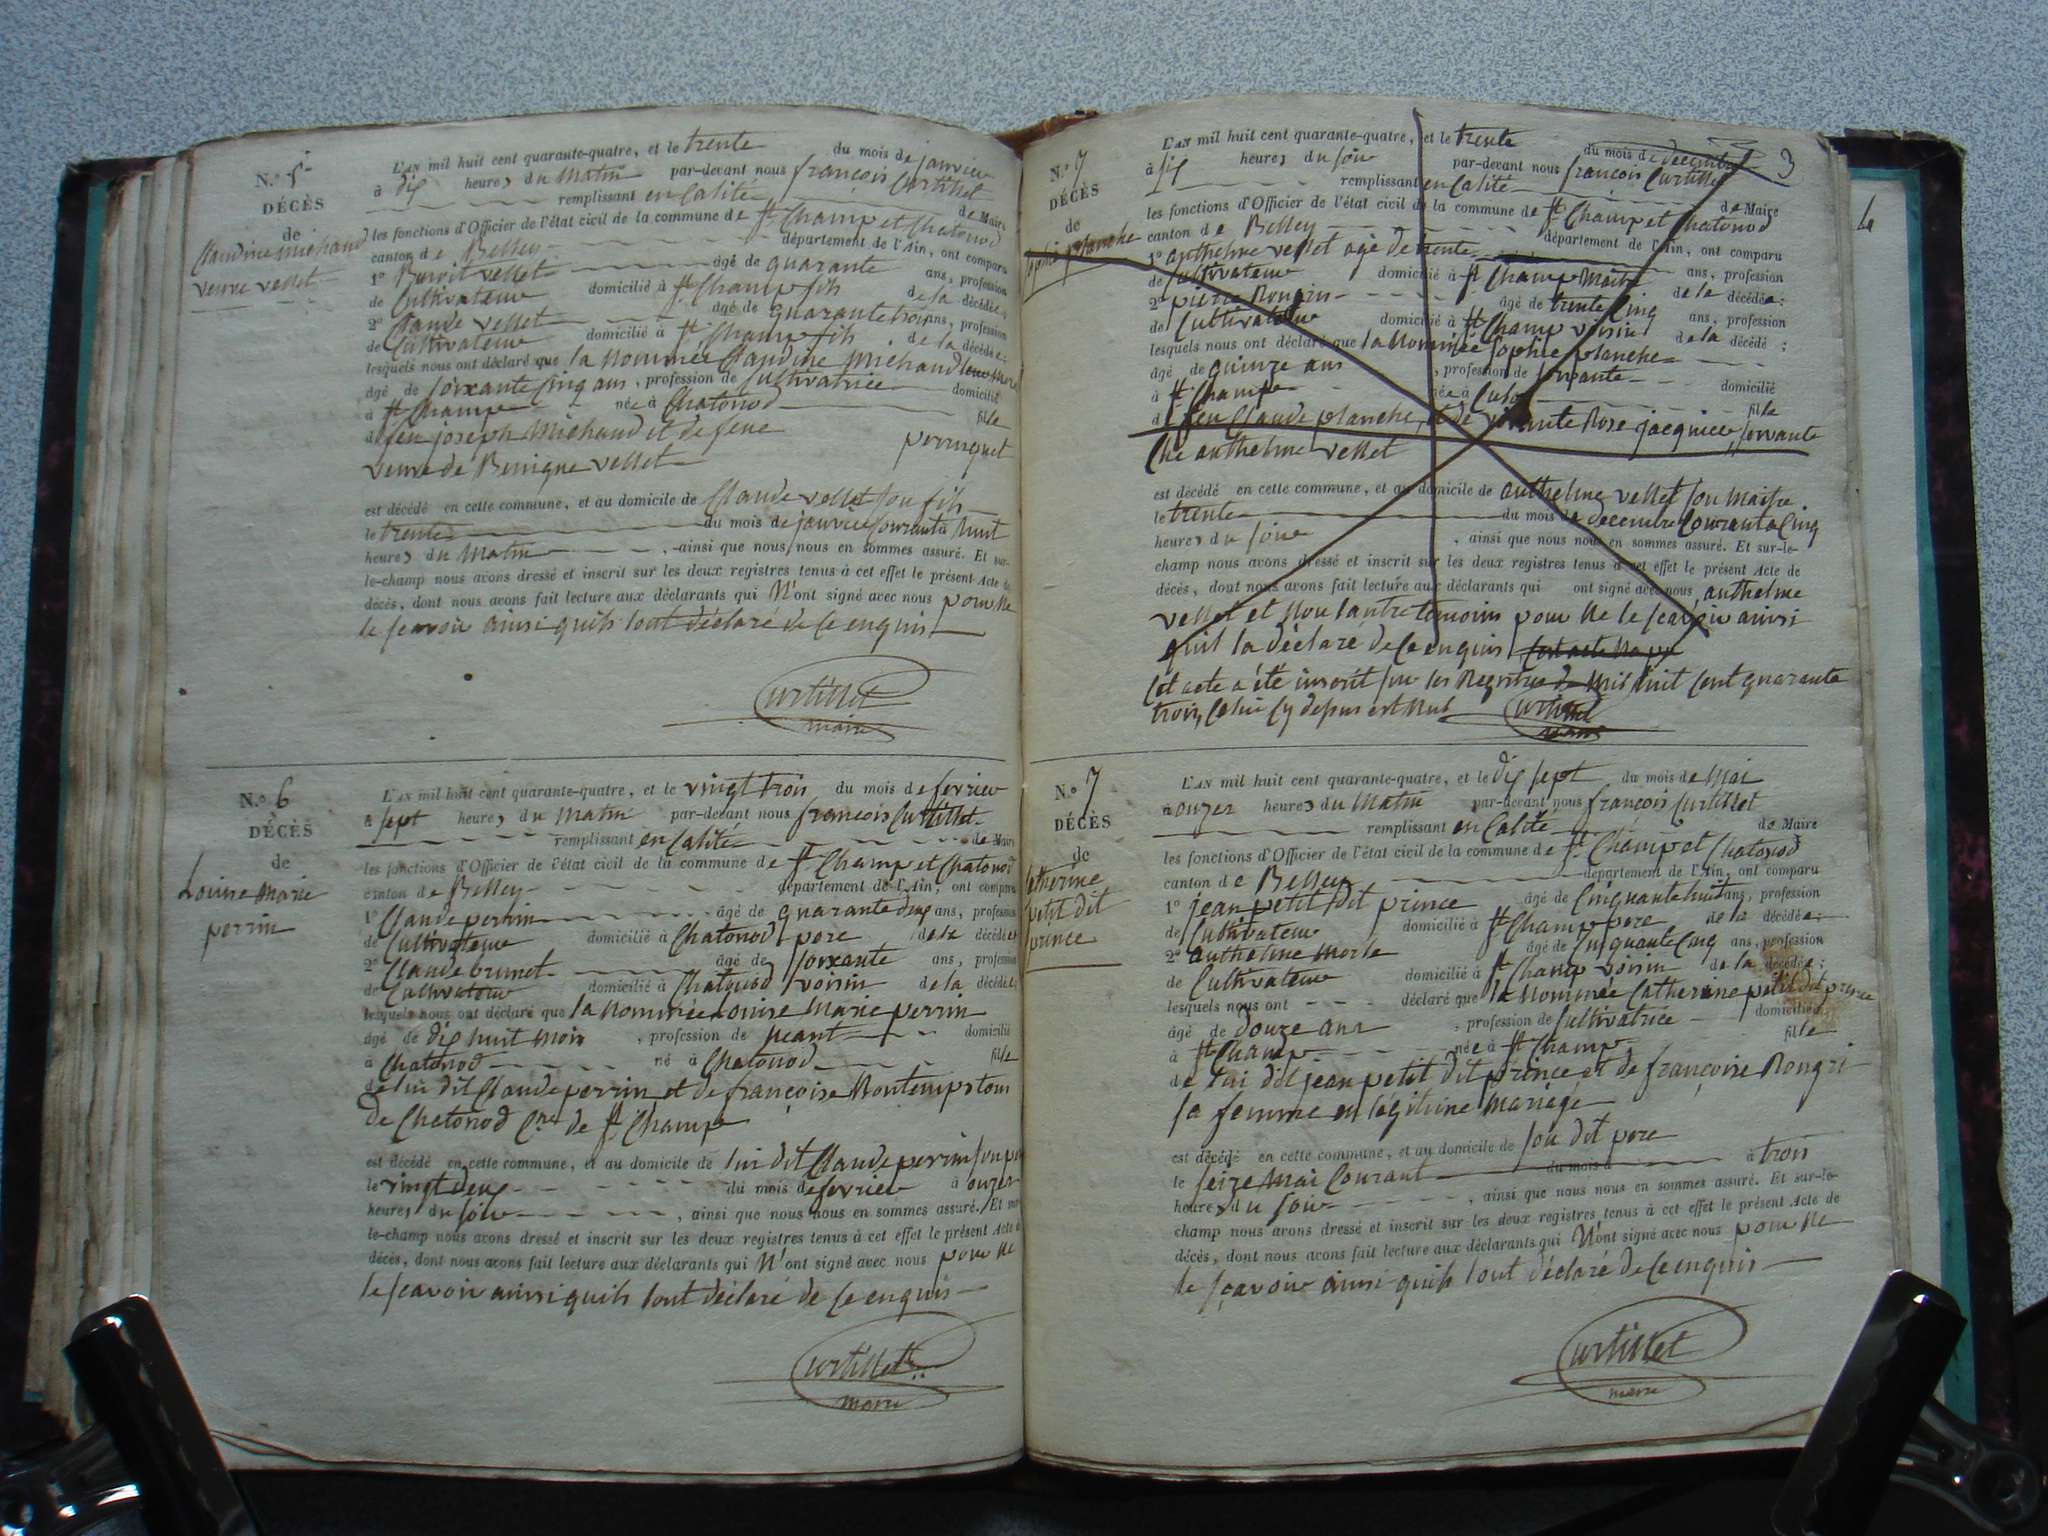 N.° 5
DÉCÈS
de
Claudine Michaud
veuve vellet
L'AN mil huit cent quarante-quatre, et le trente du mois de janvier
à dix heures du matin par-devant nous françois Curtillet
remplissant en Calité de Maire
les fonctions d'Officier de l'état civil de la commune de St Champ et Chatonod
canton de Belley département de l'Ain, ont comparu
1° Benoit vellet âgé de quarante ans, profession
de Cultivateur domicilié à St Champ fils de la décédée;
2° Claude vellet âgé de quarante trois ans, profession
de Cultivateur domicilié à St Champ fils de la décédée;
lesquels nous ont déclaré que la Nommée Claudine Michaud leur Mere
âgé de soixante Cinq ans, profession de Cultivatrice domicilié
à St Champ née à Chatonod fille
de feu joseph Michaud et de feue perruquet
veuve de Benigne vellet
est décédé en cette commune, et au domicile de Claude vellet son fils
le trente du mois de janvier Courant à huit
heures du Matin, ainsi que nous nous en sommes assuré. Et sur-
le-champ nous avons dressé et inscrit sur les deux registres tenus à cet effet le présent Acte de
décès, dont nous avons fait lecture aux déclarants qui N'ont signé avec nous pour Ne
le scavoir ainsi quils lont déclaré de Ce enquis
Curtillet
maire
N.° 6
DÉCÈS
de
Louise Marie
perrin
L'AN mil huit cent quarante-quatre, et le vingt trois du mois de fevrier
à sept heures du Matin par-devant nous françois Curtillet
remplissant en Calité de Maire
les fonctions d'Officier de l'état civil de la commune de St Champ et Chatonod
canton de Belley département de l'Ain, ont comparu
1° Claude perrin âgé de quarante deux ans, profession
de Cultivateur domicilié à Chatonod pere de la décédée
2° Claude brunet âgé de soixante ans, profession
de Cultivateur domicilié à Chatonod voisin de la décédée
lesquels nous ont déclaré que la Nommée Louise Marie perrin
âgé de dix huit mois, profession de Neant domicilié
à Chatonod né à Chatonod fille
de lui dit Claude perrin et de françoise Montemps tous
de Chatonod Cne de St Champ
est décédé en cette commune, et au domicile de lui dit Claude perrin son pere
le vingt deux du mois de fevrier à onzes
heures du soir, ainsi que nous nous en sommes assuré. Et sur-
le-champ nous avons dressé et inscrit sur les deux registres tenus à cet effet le présent Acte de
décès, dont nous avons fait lecture aux déclarants qui N'ont signé avec nous pour Ne
le scavoir ainsi quils lont déclaré de Ce enquis
Curtillet
maire
3
4
N.° 7
DÉCÈS
de
Sophie planche
L'AN mil huit cent quarante-quatre, et le trente du mois de decembre
à six heures du soir par-devant nous françois Curtillet
remplissant en Calité de Maire
les fonctions d'Officier de l'état civil de la commune de St Champ et Chatonod
canton de Belley département de l'Ain, ont comparu
1° anthelme vellet agé de trente ans, profession
de Cultivateur domicilié à St Champ Maitre de la décédée;
2° pierre Rougin âgé de trente Cinq ans, profession
de Cultivateur domicilié à St Champ voisin de la décédé;
lesquels nous ont déclaré que la Nommée Sophie planche
âgé de quinze ans, profession de servante domicilié
à St Champ née à Culoz fille
de feu Claude planche, et de vivante Rose jacquier, servante
Ché anthelme vellet
est décédé en cette commune, et au domicile de anthelme vellet son Maitre
le trente du mois de decembre Courant à Cinq
heures du soir, ainsi que nous nous en sommes assuré. Et sur-le-
champ nous avons dressé et inscrit sur les deux registres tenus à cet effet le présent Acte de
décès, dont nous avons fait lecture aux déclarants qui ont signé avec nous, anthelme
vellet et Non lautre temoins pour Ne le scavoir ainsi
quil la déclaré de Ce enquis
Cet acte a été inscrit sur les Registres de Mil huit Cent quarante
trois, Celui Cy dessus est Nul
Curtillet
maire
N.° 7
DÉCÈS
de
Catherine
petit dit
prince
L'AN mil huit cent quarante-quatre, et le dix sept du mois de Mai
à onzes heures du Matin par-devant nous françois Curtillet
remplissant en Calité de Maire
les fonctions d'Officier de l'état civil de la commune de St Champ et Chatonod
canton de Belley département de l'Ain, ont comparu
1° jean petit dit prince âgé de Cinquante huit ans, profession
de Cultivateur domicilié à St Champ pere de la décédée;
2° anthelme Morle âgé de Cinquante Cinq ans, profession
de Cultivateur domicilié à St Champ voisin de la décédée;
lesquels nous ont déclaré que la Nommée Catherine petit dit prince
âgé de douze ans, profession de Cultivatrice domiciliée
à St Champ née à St Champ fille
de lui dit jean petit dit prince et de françoise Rougri
sa femme en légitime Mariage
est décédé en cette commune, et au domicile de son dit pere
le seize Mai Courant du mois à trois
heures du soir, ainsi que nous nous en sommes assuré. Et sur-le-
champ nous avons dressé et inscrit sur les deux registres tenus à cet effet le présent Acte de
décès, dont nous avons fait lecture aux déclarants qui N'ont signé avec nous pour Ne
le sçavoir ainsi quils lont déclaré de Ce enquis
Curtillet
maire